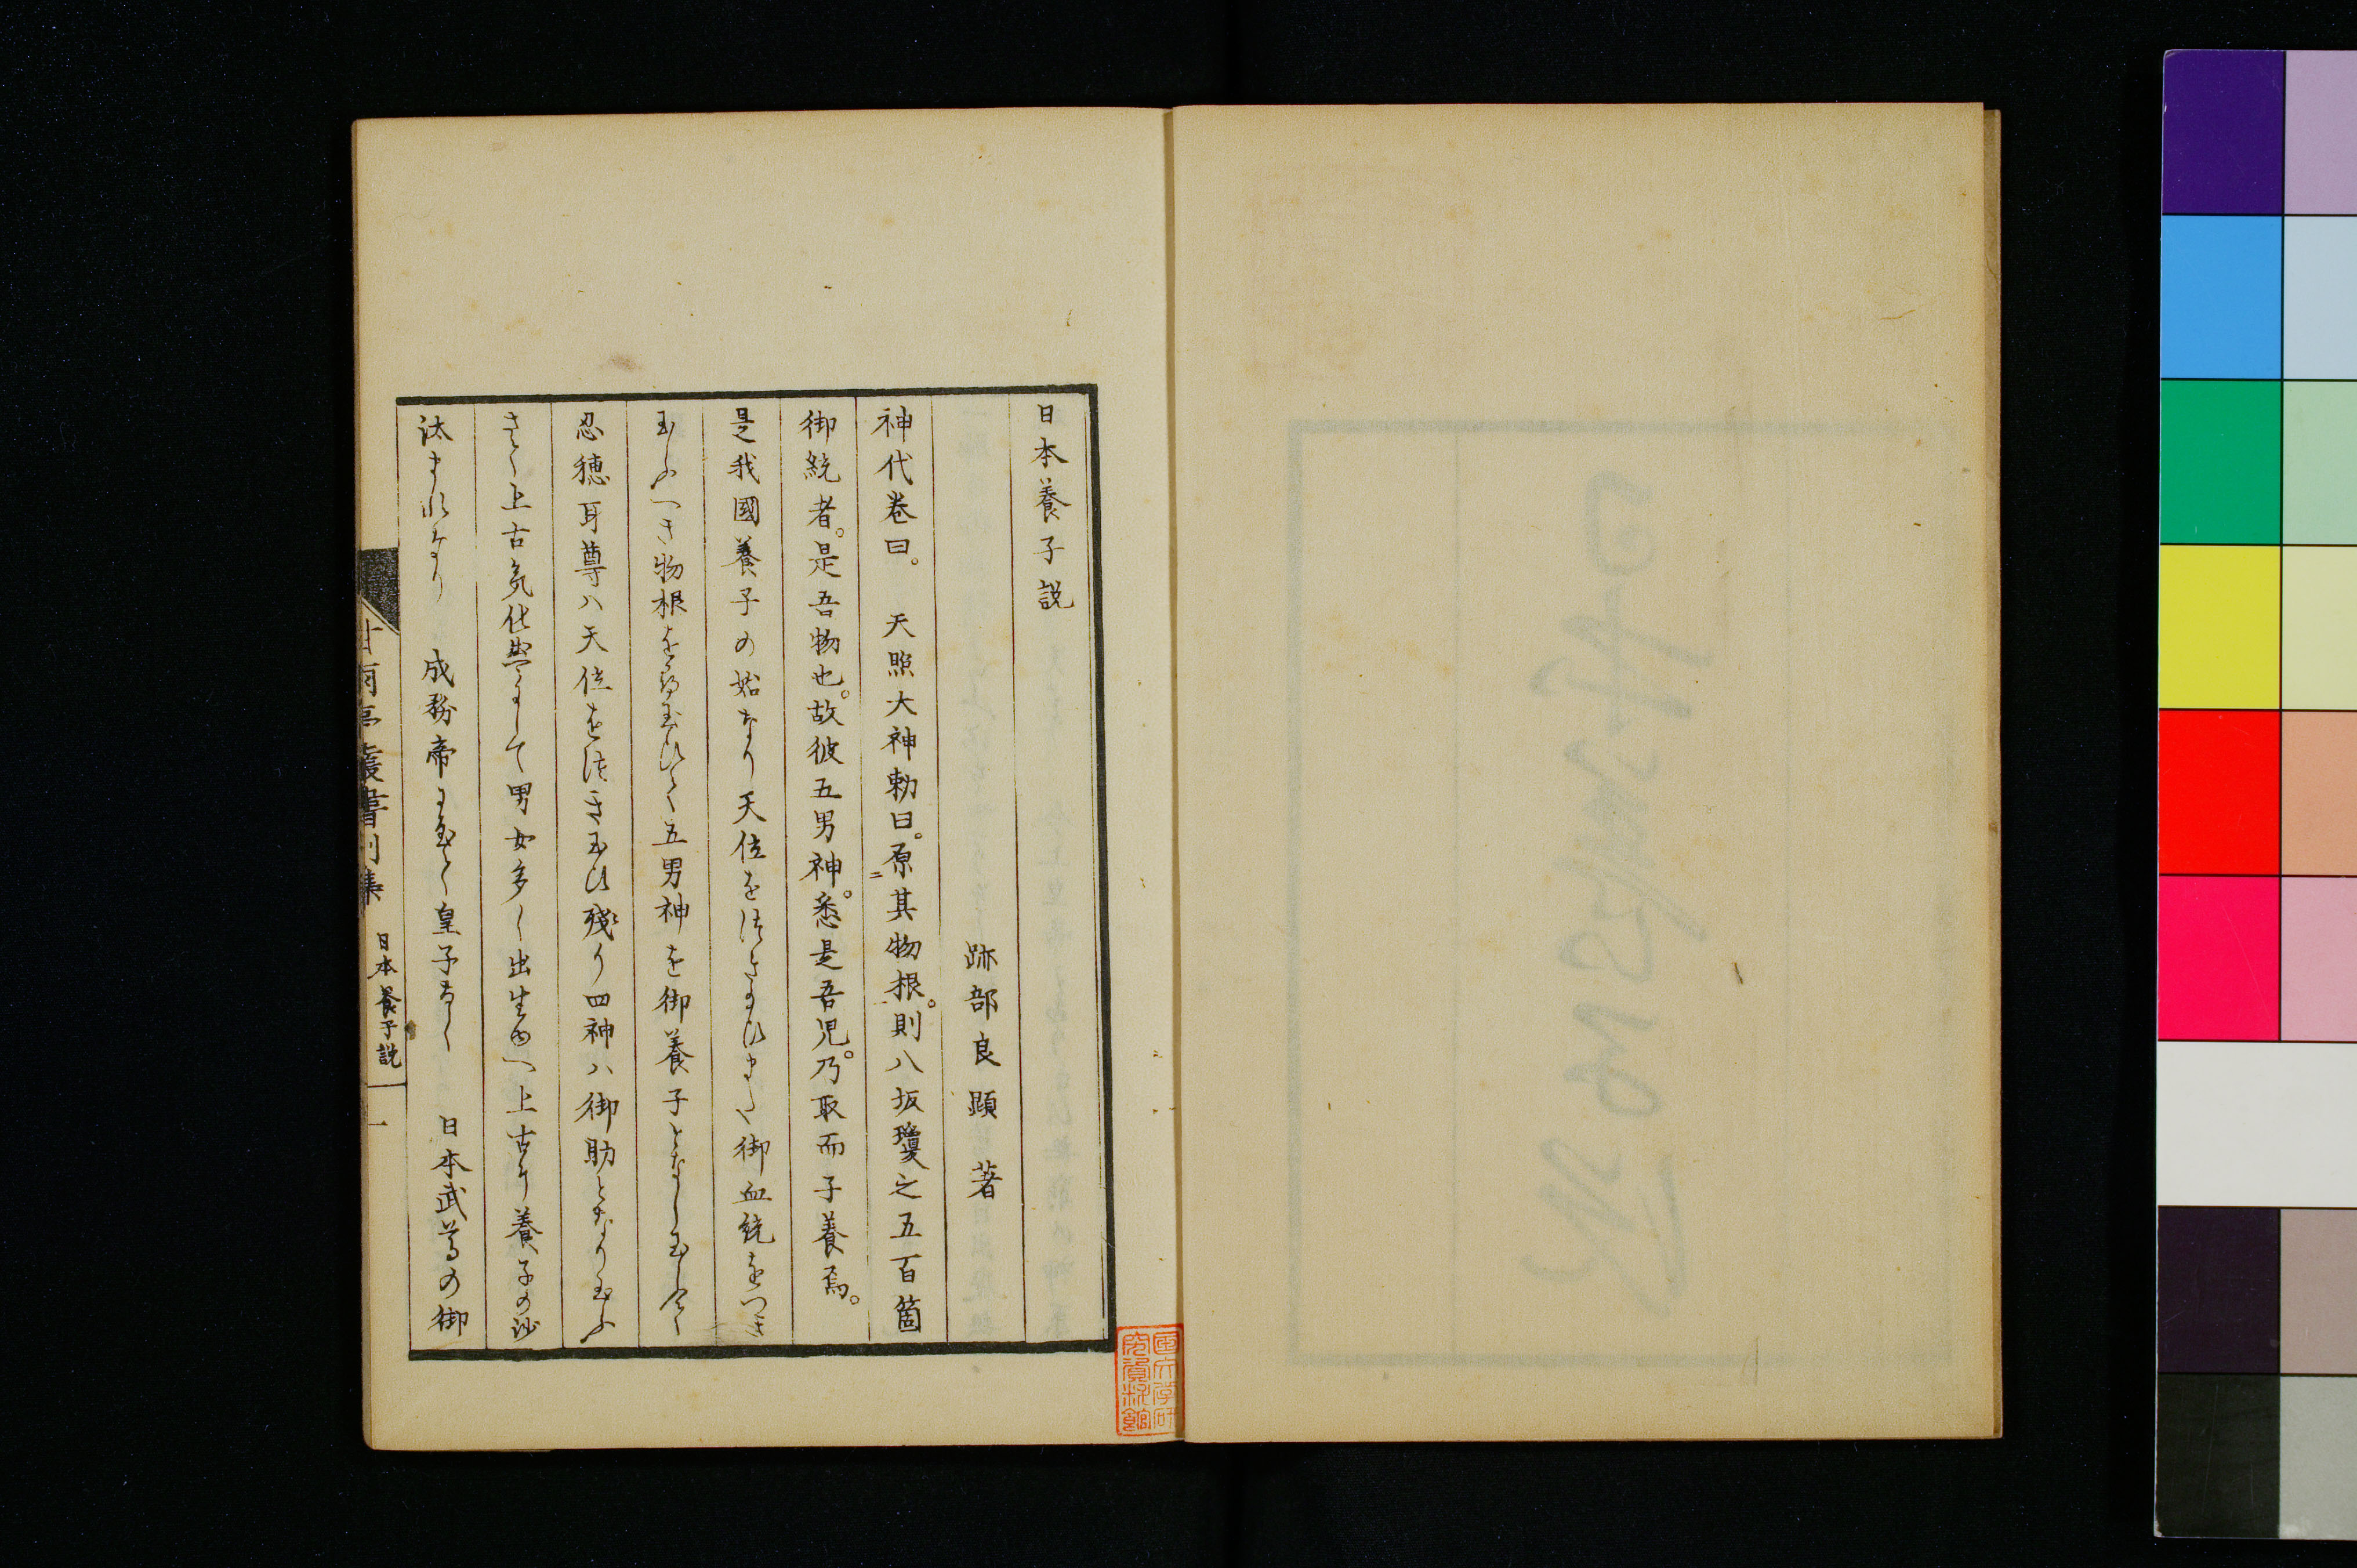 日本養子説
跡部良顕　著
神代巻曰。　天照大神勅曰。原其物根。則八坂瓊之五百箇
御統者。是吾物也。故彼五男神。悉是吾児。乃取而子養焉。
是我國養子の始なり天位を御血統をつき
玉ふへき物根を五男神を御養子となし玉
忍穂耳尊ハ天位をつき玉ひ残り四神ハ御助となり玉ふ
上古氣化にして男女多く出生ゆへ上古ハ養子の沙
汰まれなり　成務帝に至て皇子なく　日本武尊の御
甘雨亭叢書別集　日本養子説　一
国文学研
究資料館